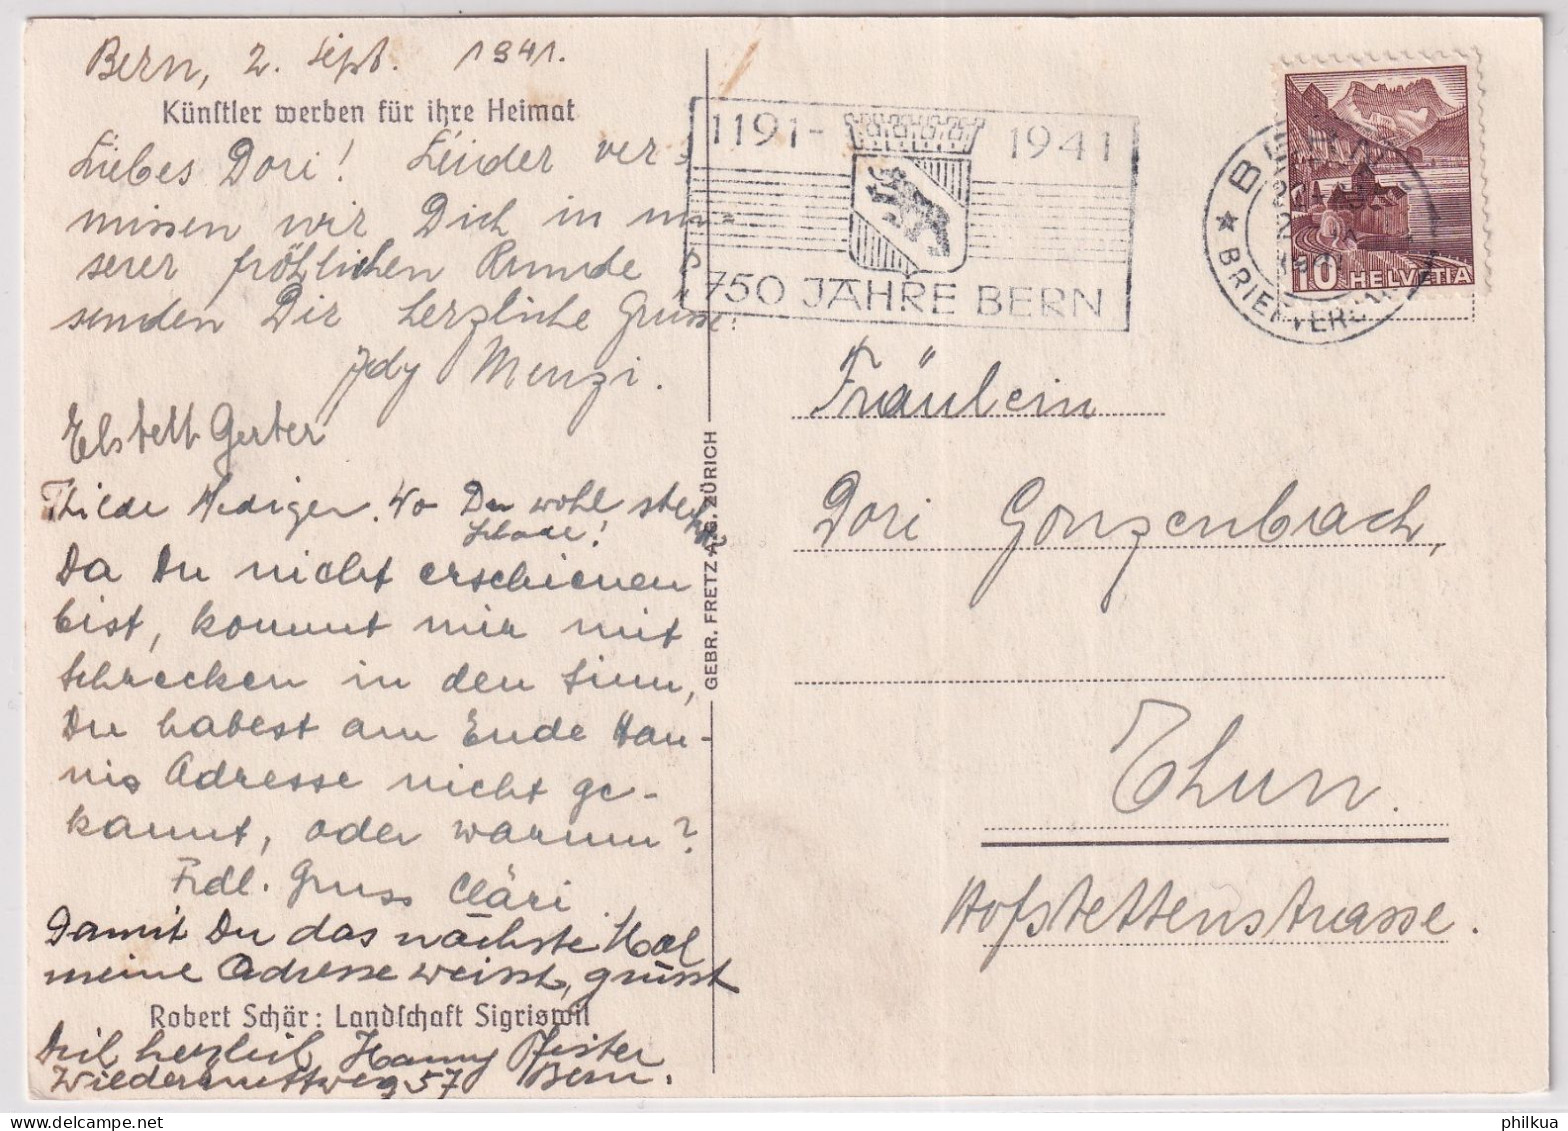 Bern, 2. Sept. 1941.
Künstler werben für ihre Heimat
Liebes Dori! Leider ver-
missen wir Dich in un-
serer fröhlichen Runde &
senden Dir herzliche Grüsse.
Menzi.
Gerber
Wo Du wohl steckst
Schade!
Da Du nicht erschienen
bist, kommt mir mit
Schrecken in den Sinn,
Du habest am Ende Han-
nis Adresse nicht ge-
kannt, oder warum?
Frdl. Gruss Cläri.
Damit Du das nächste Mal
meine Adresse weisst, grüsst
Robert Schär: Landschaft Sigriswil
Dich herzlich Hanny Pfister
57 Bern.
GEBR. FRETZ A.G. ZÜRICH
1191- 1941
750 JAHRE BERN
BERN
BRIEFVERSAND
10 HELVETIA
Fräulein
Dori Gonzenbach,
Thun.
Hofstettenstrasse.
philkua